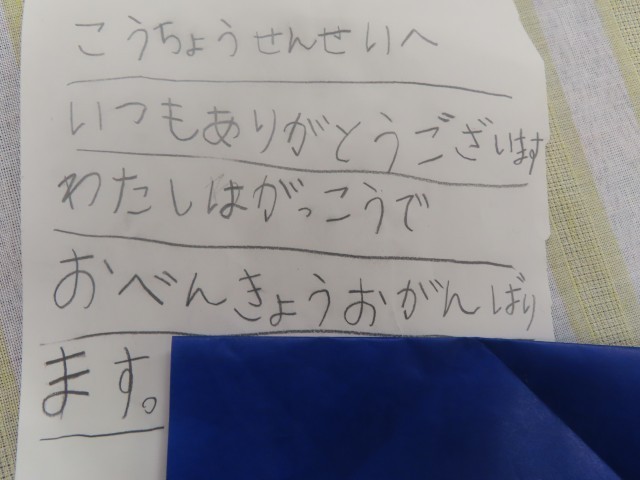 こうちょうせんせいへ
いつもありがとうございます
わたしはがっこうで
おべんきょうおがんばり
ます。